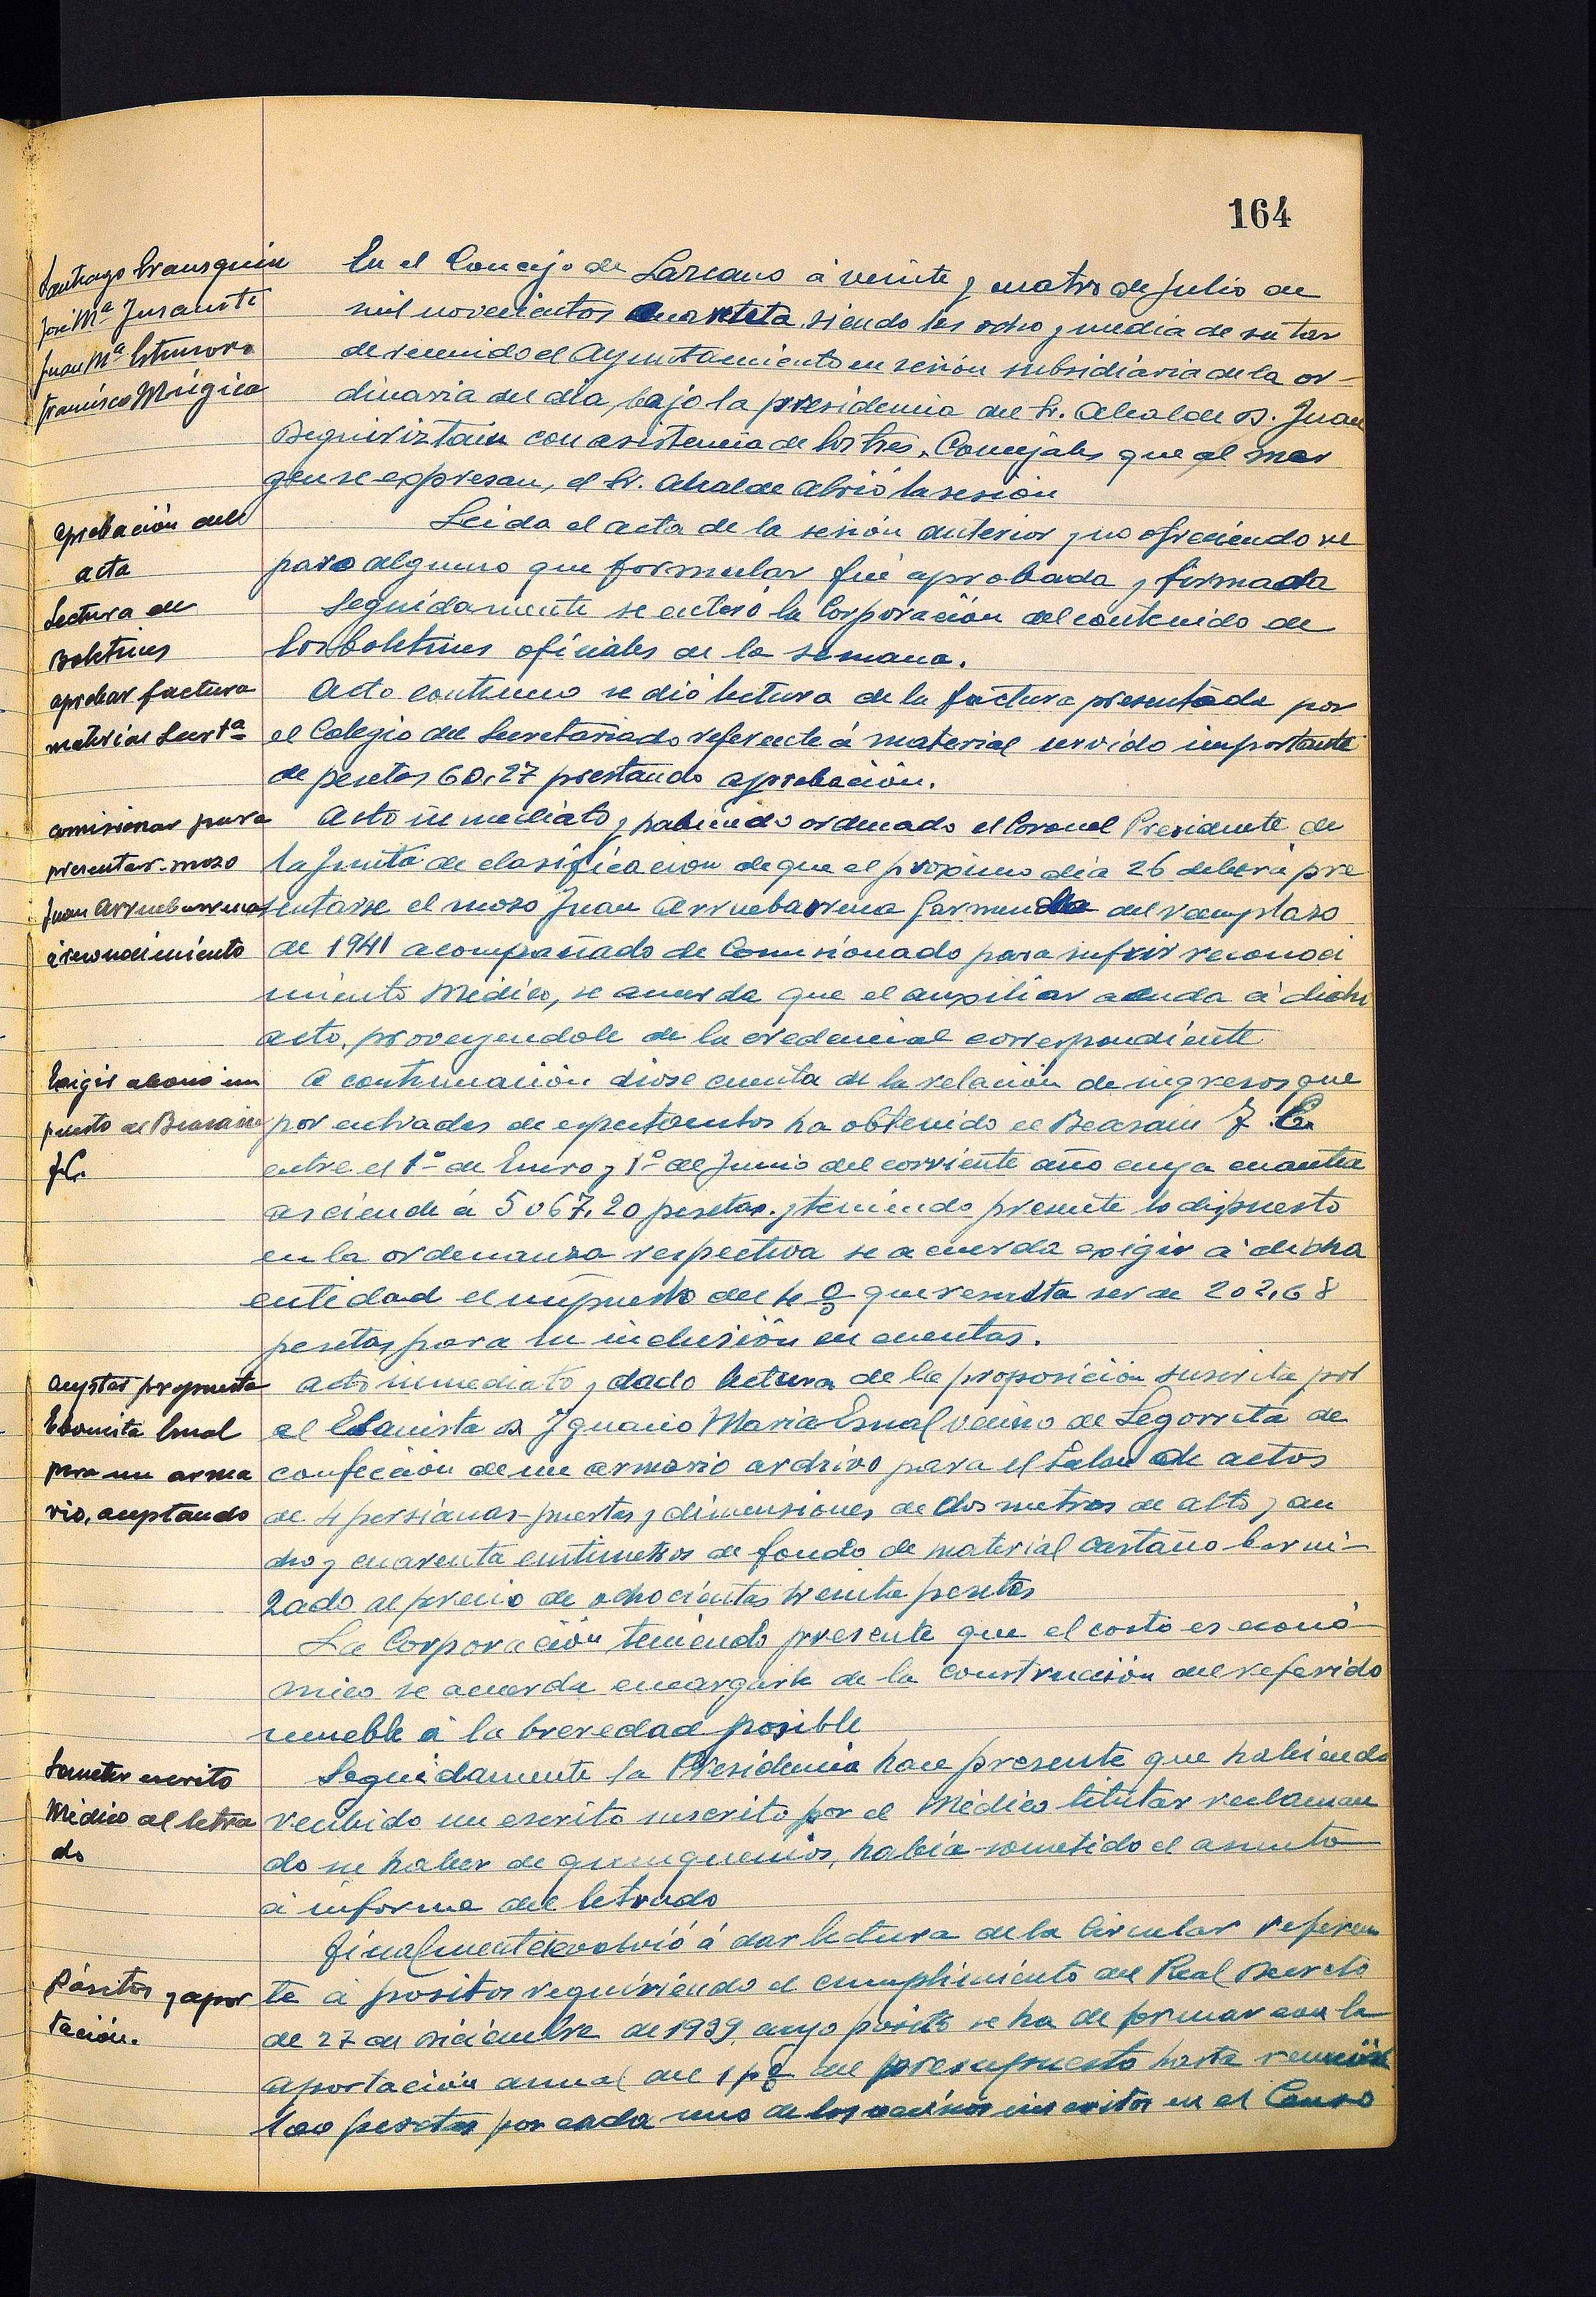 164
Santiago Irausquin
José Mª Insausti
Juan Mª
Francisco Múgica
En el Concejo de Lazcano á veinte y cuatro de Julio de
mil novecientos cuarenta, siendo las ocho y media de su tar
de reunido el Ayuntamiento en sesión subsidiaria de la or-
dinaria del dia, bajo la presidencia del Sr. Alcalde D. Juan
Beguiriztain con asistencia de los tres. Concejales que al mar
gen se expresan, el Sr. Alcalde abrió la sesión
aprobación del
acta
Leida el acta de la sesión anterior y no ofreciendo re
paro alguno que formular fué aprobada y firmada
Lectura de
Boletines
Seguidamente se enteró la Corporación del contenido de
los boletines oficiales de la semana.
aprobar factura
material Secrtª
Acto continuo se dió lectura de la factura presentada por
el Colegio del Secretariado referente á material servido importante
de pesetas 60,27 prestando aprobación.
comisionar para
presentar mozo
Juan Arruebarrena
á reconocimiento
Acto inmediato y habiendo ordenado el Coronel Presidente de
la Junta de clasificacion de que el proximo dia 26 deberá pre
sentarse el mozo Juan Arruebarrena Garmendia del reemplazo
de 1941 acompañado de Comisionado para sufrir reconoci
miento Médico, se acuerda que el auxiliar acuda á dicho
acto, proveyendole de la credencial correspondiente
Exigir abono im
puesto al Beasain
F.C.
A continuación diose cuenta de la relación de ingresos que
por entradas de espectaculos ha obtenido el Beasain F. C.
entre el 1º de Enero y 1º de Junio del corriente año cuya cuantia
asciende á 5067,20 pesetas. y teniendo presente lo dispuesto
en la ordenanza respectiva se acuerda exigir á dicha
entidad el impuesto del 4 % que resulta ser de 202,68
pesetas para su inclusión en cuentas.
aceptar propuesta
Ebanista Esnal
para un arma
rio, aceptando
Acto inmediato y dado lectura de la proposición suscrita por
el Ebanista D. Ignacio Maria Esnal vecino de Legorreta de
confección de un armario archivo para el Salon de actos
de 4 persianas-puertas y dimensiones de dos metros de alto y an
cho y cuarenta centimetros de fondo de material castaño barni-
zado al precio de ochocientas treinta pesetas
La Corporación teniendo presente que el costo es econó-
mico se acuerda encargarle de la construcción del referido
mueble á la brevedad posible
Someter escrito
Médico al letra
do
Seguidamente la Presidencia hace presente que habiendo
recibido un escrito suscrito por el Médico titular reclaman
do su haber de quinquenios, habia sometido el asunto
á informe del letrado
Pósitos y apor
tación.
Finalmente se volvió á dar lectura de la Circular referen
te á positos requiriendo el cumplimiento del Real Decreto
de 27 de Diciembre de 1929, cuyo posito se ha de formar con la
aportación anual del 1 p% del presupuesto hasta reunir
100 pesetas por cada uno de los vecinos inscritos en el Censo